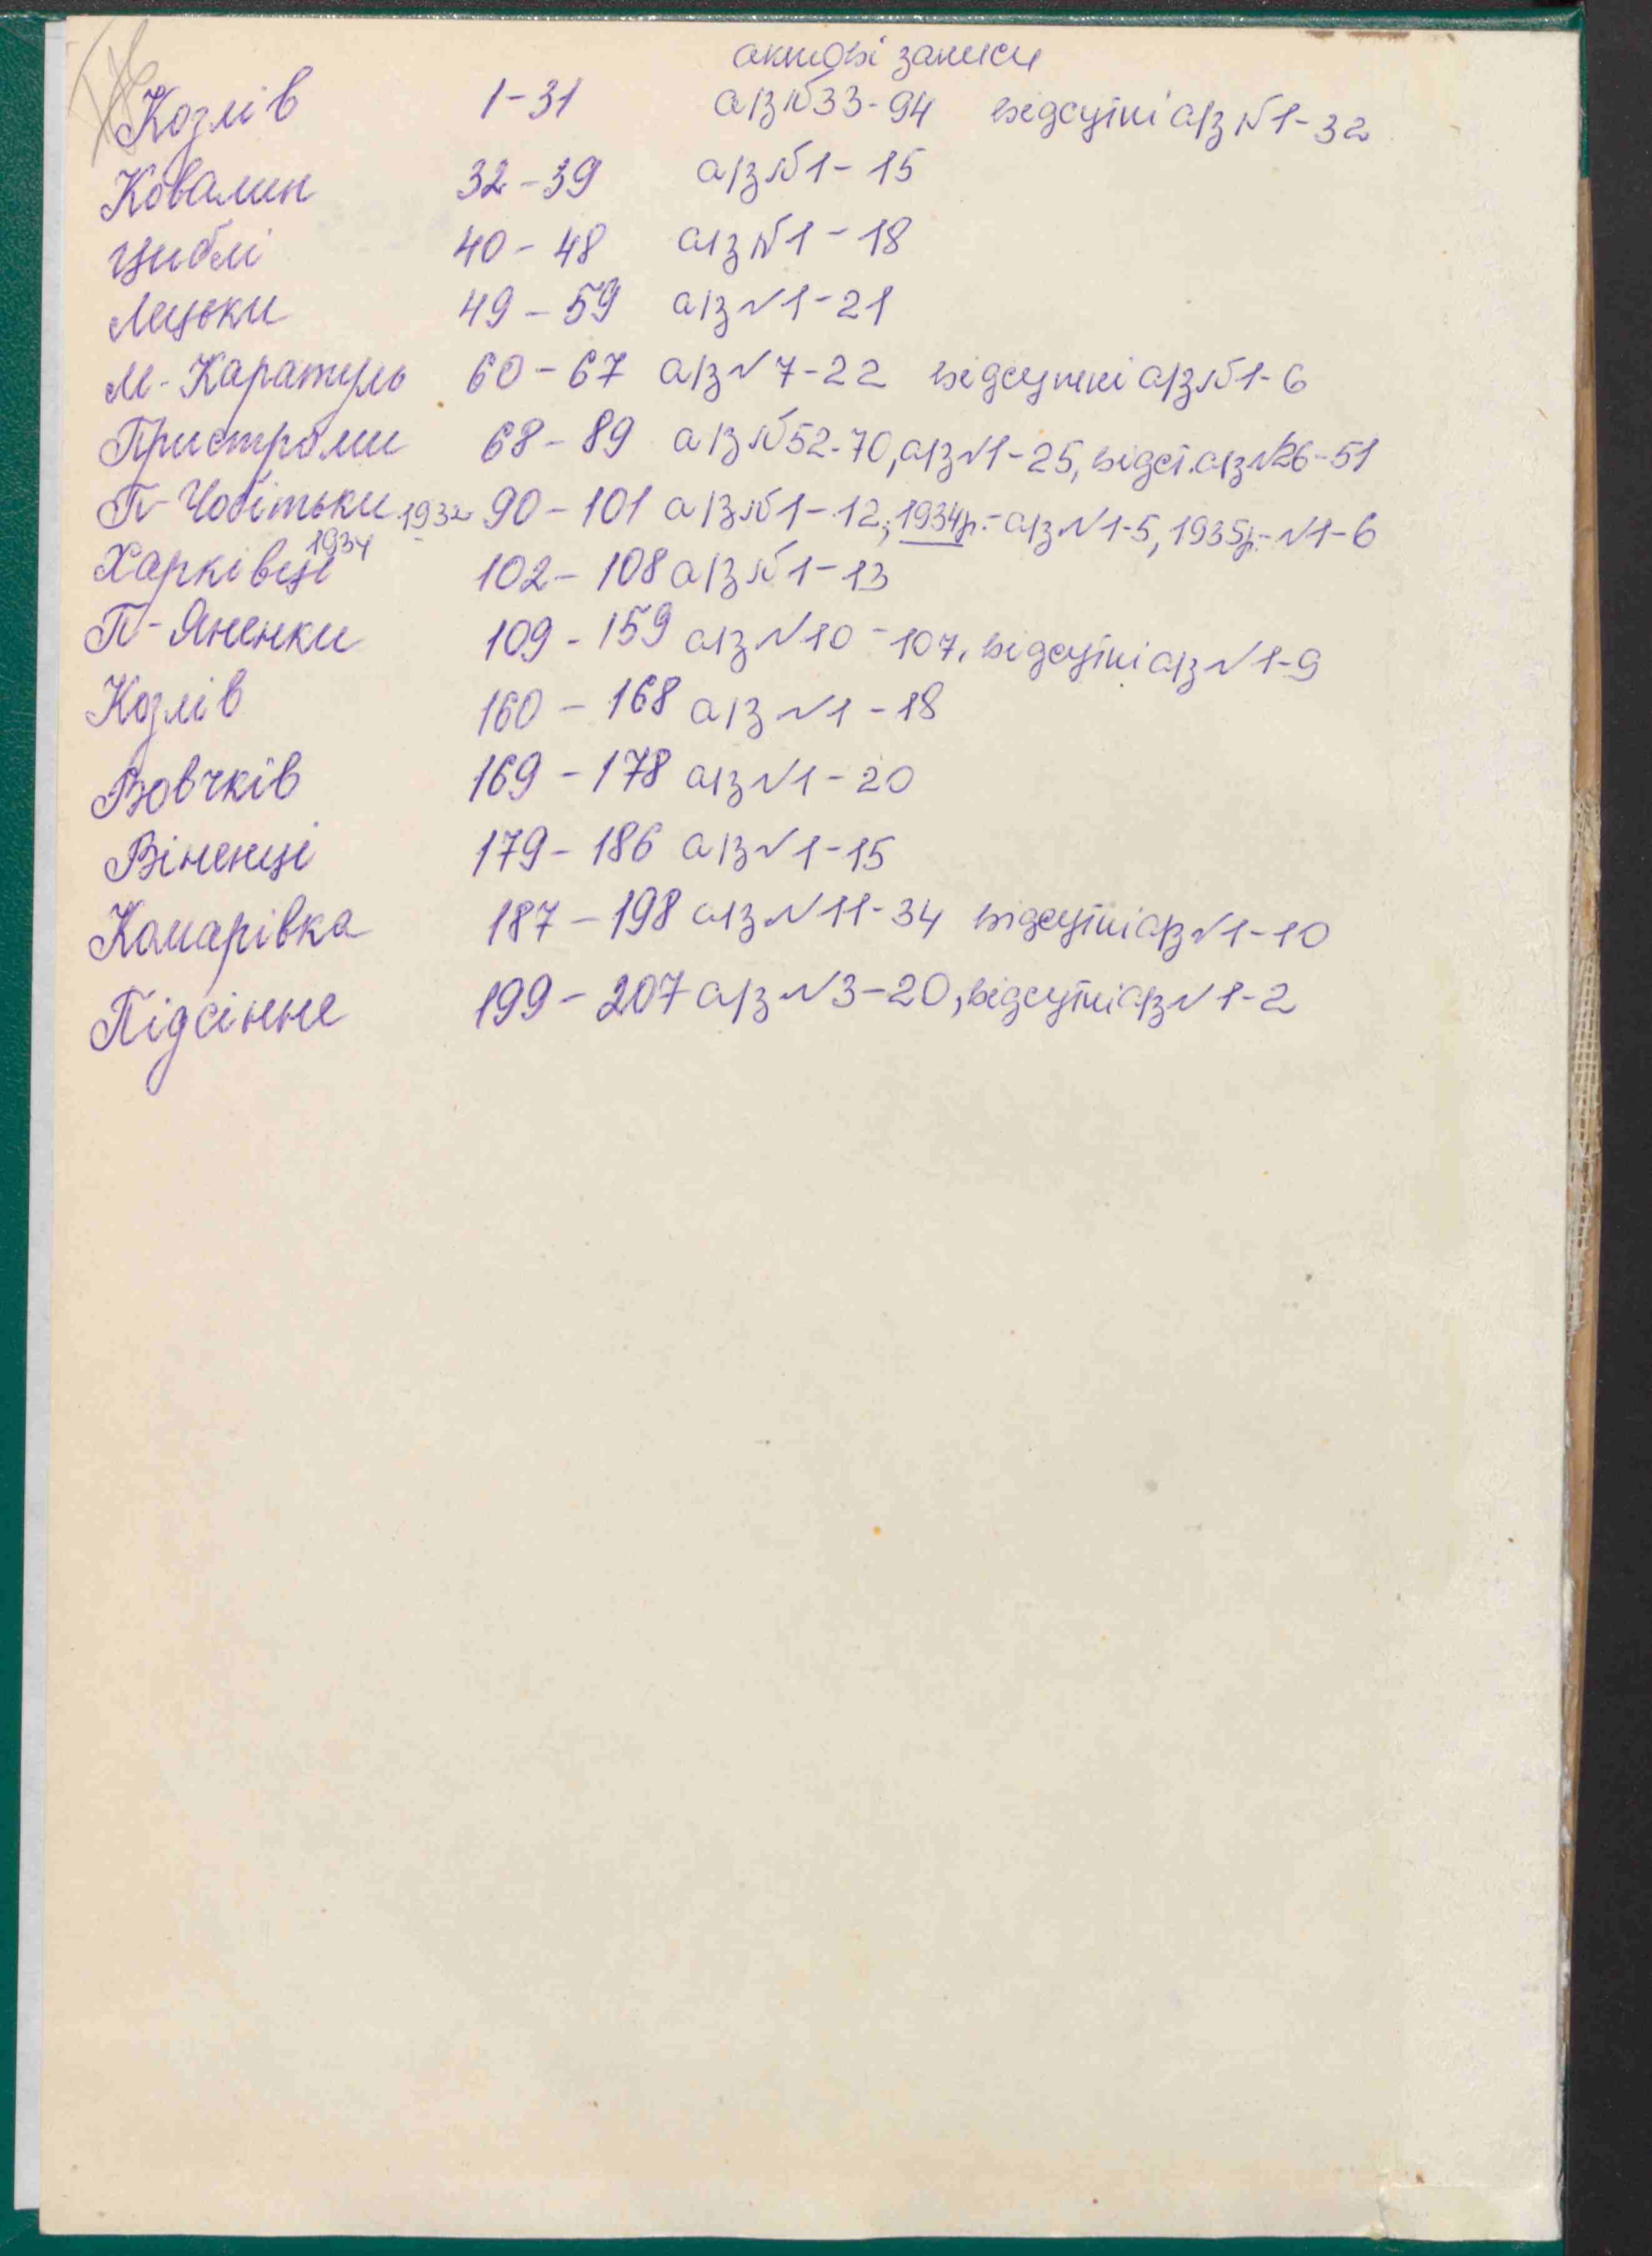 актові записи
Козлів 1-31 а/з №33-94 відсутні а/з №1-32
Ковалин 32-39 а/з №1-15
Циблі 40-48 а/з №1-18
Лецьки 49-59 а/з №1-21
М-Каратуль 60-67 а/з №7-22 відсутні а/з №1-6
Пристроми 68-89 а/з №52-70, а/з №1-25, відст. а/з №26-51
П-Чобітьки 1932 90-101 а/з №1-12; 1934р.-а/з №1-5, 1935р.-№1-6
Харківці 1934 102-108 а/з №1-13
П-Яненки 109-159 а/з №10-107, відсутні а/з №1-9
Козлів 160-168 а/з №1-18
Вовчків 169-178 а/з №1-20
Віненці 179-186 а/з №1-15
Комарівка 187-198 а/з №11-34 відсутні а/з №1-10
Підсінне 199-207 а/з №3-20, відсутні а/з №1-2